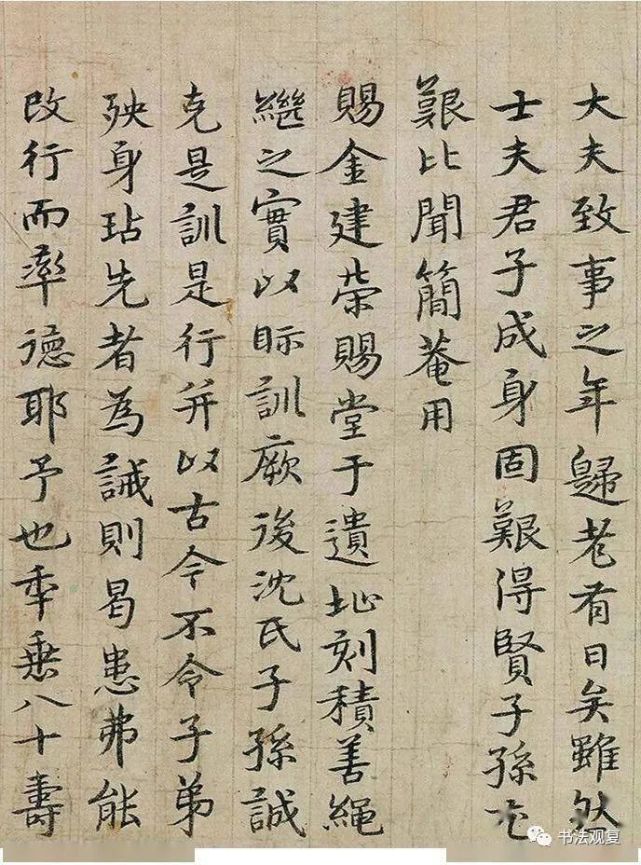 大夫致事之年歸老有日矣雖然
士夫君子成身固艱得賢子孫尤
艱比聞簡菴用
賜金建榮賜堂于遺址刻積善繩
繼之實以眎訓厥後沈氏子孫誠
克是訓是行并以古今不令子弟
殃身玷先者為誡則曷患弗能
改行而率德耶予也年垂八十壽
书法观复